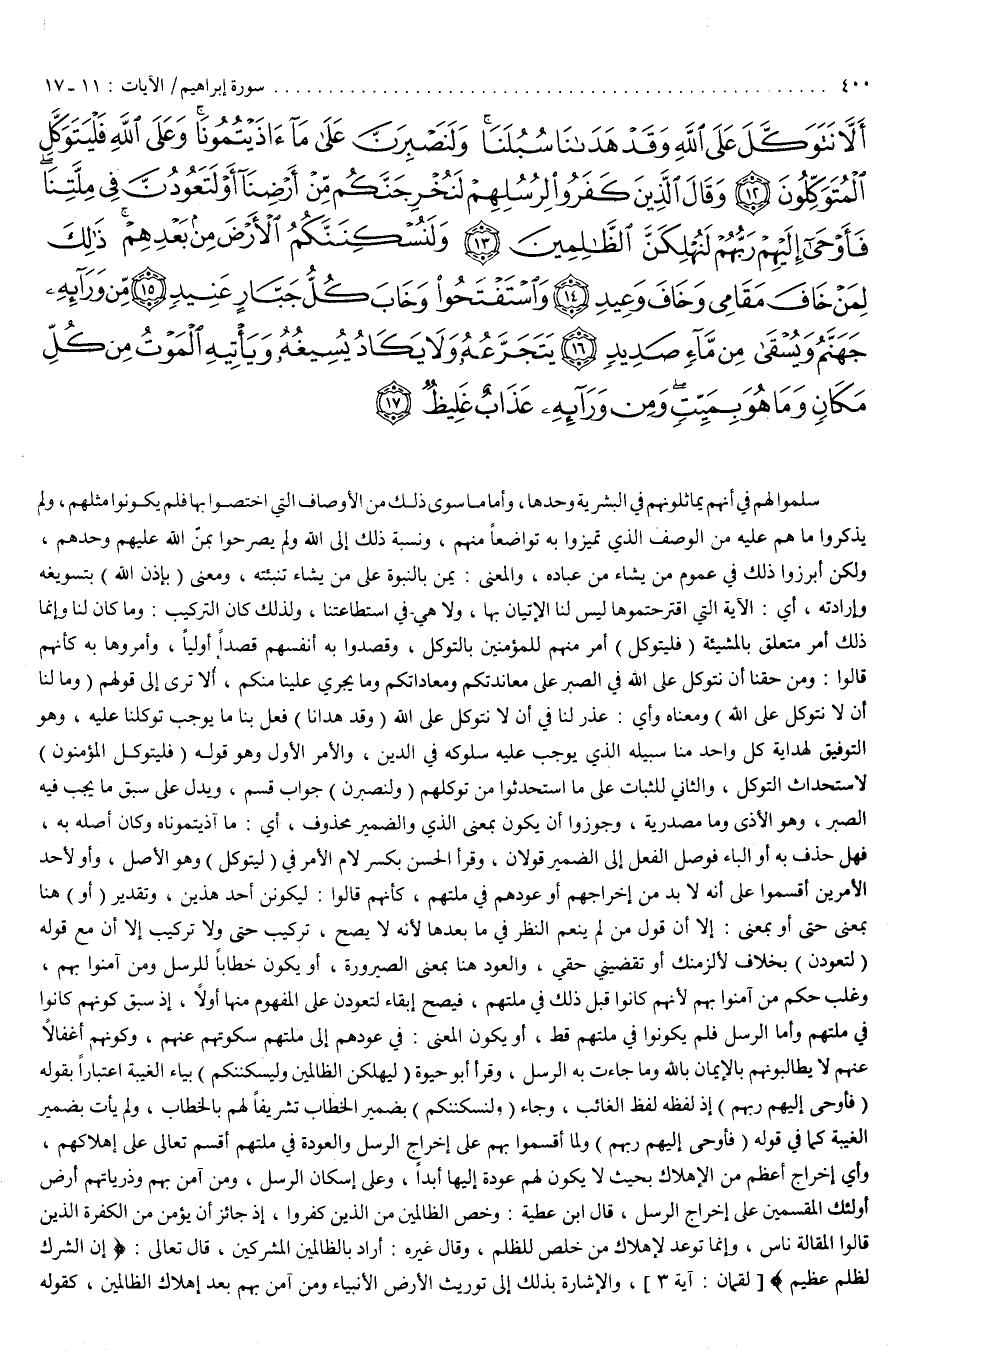 ٤٠٠ ................................................ سورة إبراهيم/ الآيات : ١١ -١٧
أَلَّا نَتَوَكَّلَ عَلَى ٱللَّهِ وَقَدْ هَدَىٰنَا سُبُلَنَا ۚ وَلَنَصْبِرَنَّ عَلَىٰ مَآ ءَاذَيْتُمُونَا ۚ وَعَلَى ٱللَّهِ فَلْيَتَوَكَّلِ
ٱلْمُتَوَكِّلُونَ ﴿١٢﴾ وَقَالَ ٱلَّذِينَ كَفَرُوا۟ لِرُسُلِهِمْ لَنُخْرِجَنَّكُم مِّنْ أَرْضِنَآ أَوْ لَتَعُودُنَّ فِى مِلَّتِنَا ۖ
فَأَوْحَىٰٓ إِلَيْهِمْ رَبُّهُمْ لَنُهْلِكَنَّ ٱلظَّٰلِمِينَ ﴿١٣﴾ وَلَنُسْكِنَنَّكُمُ ٱلْأَرْضَ مِنۢ بَعْدِهِمْ ۚ ذَٰلِكَ
لِمَنْ خَافَ مَقَامِى وَخَافَ وَعِيدِ ﴿١٤﴾ وَٱسْتَفْتَحُوا۟ وَخَابَ كُلُّ جَبَّارٍ عَنِيدٍ ﴿١٥﴾ مِّن وَرَآئِهِۦ
جَهَنَّمُ وَيُسْقَىٰ مِن مَّآءٍ صَدِيدٍ ﴿١٦﴾ يَتَجَرَّعُهُۥ وَلَا يَكَادُ يُسِيغُهُۥ وَيَأْتِيهِ ٱلْمَوْتُ مِن كُلِّ
مَكَانٍ وَمَا هُوَ بِمَيِّتٍ ۖ وَمِن وَرَآئِهِۦ عَذَابٌ غَلِيظٌ ﴿١٧﴾
سلموا لهم في أنهم يماثلونهم في البشرية وحدها ، وأما ما سوى ذلك من الأوصاف التي اختصوا بها فلم يكونوا مثلهم ، ولم
يذكروا ما هم عليه من الوصف الذي تميزوا به تواضعاً منهم ، ونسبة ذلك إلى الله ولم يصرحوا بمنّ الله عليهم وحدهم ،
ولكن أبرزوا ذلك في عموم من يشاء من عباده ، والمعنى : يمن بالنبوة على من يشاء تنبئته ، ومعنى ( بإذن الله ) بتسويغه
وإرادته ، أي : الآية التي اقترحتموها ليس لنا الإتيان بها ، ولا هي في استطاعتنا ، ولذلك كان التركيب : وما كان لنا وإنما
ذلك أمر متعلق بالمشيئة ( فليتوكل ) أمر منهم للمؤمنين بالتوكل ، وقصدوا به أنفسهم قصداً أولياً ، وأمروها به كأنهم
قالوا : ومن حقنا أن نتوكل على الله في الصبر على معاندتكم ومعاداتكم وما يجري علينا منكم ، ألا ترى إلى قولهم ( وما لنا
أن لا نتوكل على الله ) ومعناه وأي : عذر لنا في أن لا نتوكل على الله ( وقد هدانا ) فعل بنا ما يوجب توكلنا عليه ، وهو
التوفيق لهداية كل واحد منا سبيله الذي يوجب عليه سلوكه في الدين ، والأمر الأول وهو قوله ( فليتوكل المؤمنون )
لاستحداث التوكل ، والثاني للثبات على ما استحدثوا من توكلهم ( ولنصبرن ) جواب قسم ، ويدل على سبق ما يجب فيه
الصبر ، وهو الأذى وما مصدرية ، وجوزوا أن يكون بمعنى الذي والضمير محذوف ، أي : ما آذيتموناه وكان أصله به ،
فهل حذف به أو الباء فوصل الفعل إلى الضمير قولان ، وقرأ الحسن بكسر لام الأمر في ( ليتوكل ) وهو الأصل ، وأو لأحد
الأمرين أقسموا على أنه لا بد من إخراجهم أو عودهم في ملتهم ، كأنهم قالوا : ليكونن أحد هذين ، وتقدير ( أو ) هنا
بمعنى حتى أو بمعنى : إلا أن قول من لم ينعم النظر في ما بعدها لأنه لا يصح ، تركيب حتى ولا تركيب إلا أن مع قوله
( لتعودن ) بخلاف لألزمنك أو تقضيني حقي ، والعود هنا بمعنى الصيرورة ، أو يكون خطاباً للرسل ومن آمنوا بهم ،
وغلب حكم من آمنوا بهم لأنهم كانوا قبل ذلك في ملتهم ، فيصح إبقاء لتعودن على المفهوم منها أولاً ، إذ سبق كونهم كانوا
في ملتهم وأما الرسل فلم يكونوا في ملتهم قط ، أو يكون المعنى : في عودهم إلى ملتهم سكوتهم عنهم ، وكونهم أغفالاً
عنهم لا يطالبونهم بالإيمان بالله وما جاءت به الرسل ، وقرأ أبو حيوة ( ليهلكن الظالمين وليسكننكم ) بياء الغيبة اعتباراً بقوله
( فأوحى إليهم ربهم ) إذ لفظه لفظ الغائب ، وجاء ( ولنسكننكم ) بضمير الخطاب تشريفاً لهم بالخطاب ، ولم يأت بضمير
الغيبة كما في قوله ( فأوحى إليهم ربهم ) ولما أقسموا بهم على إخراج الرسل والعودة في ملتهم أقسم تعالى على إهلاكهم ،
وأي إخراج أعظم من الإهلاك بحيث لا يكون لهم عودة إليها أبداً ، وعلى إسكان الرسل ، ومن آمن بهم وذرياتهم أرض
أولئك المقسمين على إخراج الرسل ، قال ابن عطية : وخص الظالمين من الذين كفروا ، إذ جائز أن يؤمن من الكفرة الذين
قالوا المقالة ناس ، وإنما توعد لإهلاك من خلص للظلم ، وقال غيره : أراد بالظالمين المشركين ، قال تعالى : ﴿ إن الشرك
لظلم عظيم ﴾ [ لقمان : آية ٣ ] ، والإشارة بذلك إلى توريث الأرض الأنبياء ومن آمن بهم بعد إهلاك الظالمين ، كقوله